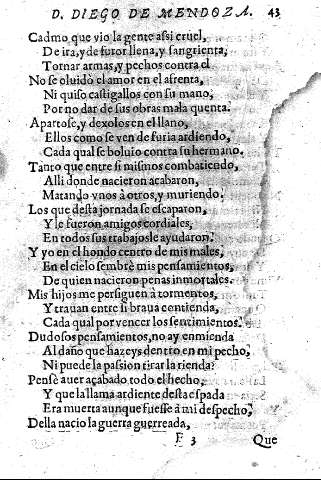 D. DIEGO DE MENDOZA. 43
Cadmo, que vio la gente assi cruel,
De ira, y de furor llena, y sangrienta,
Tornar armas, y pechos contra el
No se oluidò el amor en el afrenta,
Ni quiso castigallos con su mano,
Por no dar de sus obras mala quenta.
Apartose, y dexolos en el llano,
Ellos como se ven de furia ardiendo,
Cada qual se boluio contra su hermano.
Tanto que entre si mismos combatiendo,
Alli donde nacieron acabaron,
Matando vnos à otros, y muriendo.
Los que desta jornada se escaparon,
Y le fueron amigos cordiales,
En todos sus trabajos le ayudaron.
Y yo en el hondo centro de mis males,
En el cielo sembrè mis pensamientos,
De quien nacieron penas inmortales.
Mis hijos me persiguen à tormentos,
Y trauan entre si braua contienda,
Cada qual por vencer los sentimientos.
Dudosos pensamientos, no ay enmienda
Al daño que hazeys dentro en mi pecho,
Ni puede la passion tirar la rienda?
Pensè auer açabado todo el hecho,
Y que la llama ardiente desta espada
Era muerta aunque fuesse à mi despecho,
Della nacio la guerra guerreada,
F 3 Que